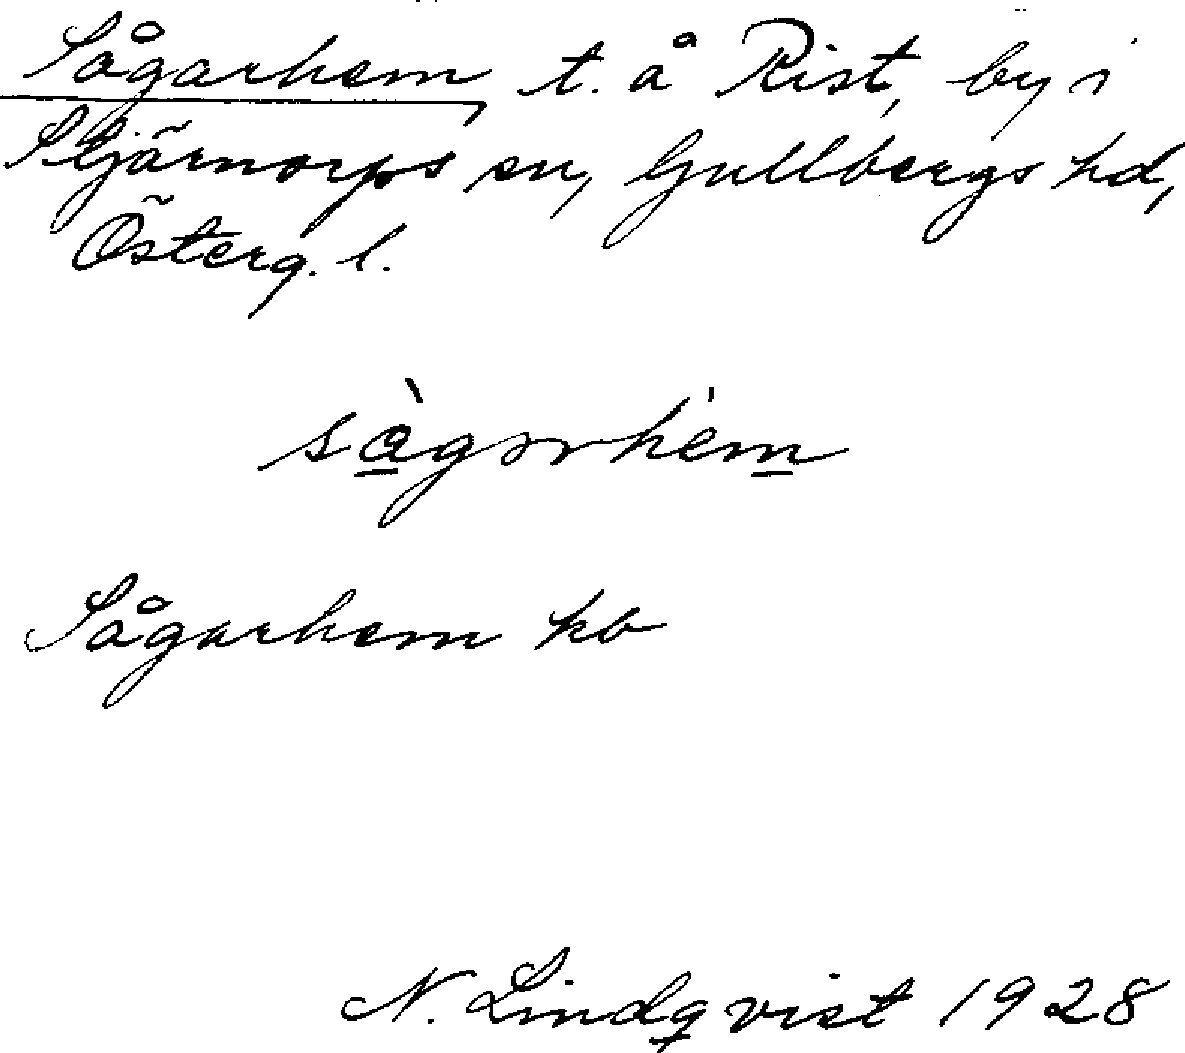 Sågarhem, t. å Rist, by i
Stjärnorps sn, Gullbergs hd,
Österg. l.
sàgɔrhem
Sågarhem kb
N. Lindqvist 1928